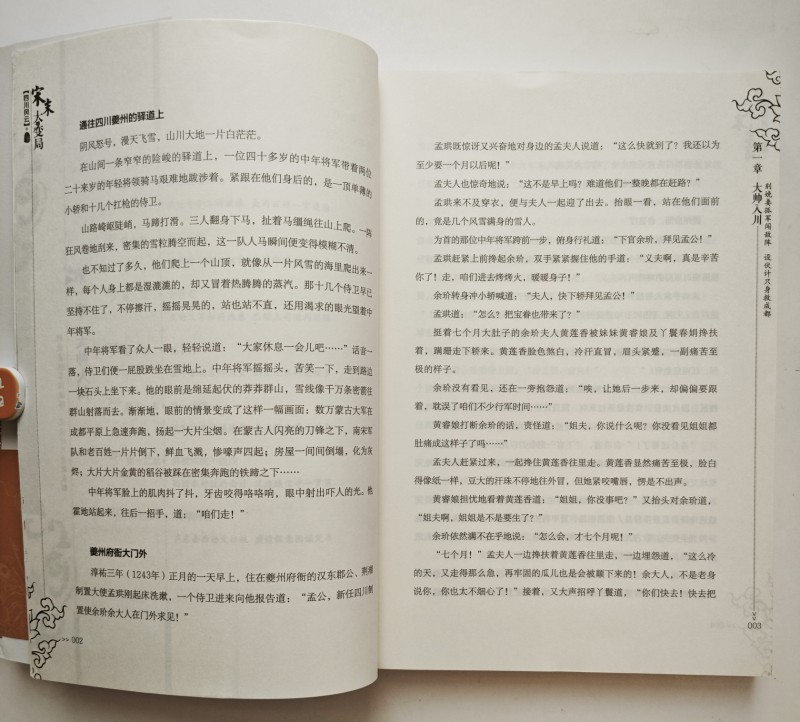 宋末大变局
【四川风云】
通往四川夔州的驿道上
阴风怒号，漫天飞雪，山川大地一片白茫茫。
在山间一条窄窄的险峻的驿道上，一位四十多岁的中年将军带着两位
二十来岁的年轻将领骑马艰难地跋涉着。紧跟在他们身后的，是一顶单薄的
小轿和十几个扛枪的侍卫。
山路崎岖陡峭，马蹄打滑。三人翻身下马，扯着马缰绳往山上爬。一阵
狂风卷地刮来，密集的雪粒腾空而起，这一队人马瞬间便变得模糊不清。
也不知过了多久，他们爬上一个山顶，就像从一片风雪的海里爬出来一
样，每个人身上都是湿漉漉的，却又冒着热腾腾的蒸汽。那十几个侍卫早已
坚持不住了，不停擦汗，摇摇晃晃的，站也站不直，还用渴求的眼光望着中
年将军。
中年将军看了众人一眼，轻轻说道：“大家休息一会儿吧……”话音一
落，侍卫们便一屁股跌坐在雪地上。中年将军摇摇头，苦笑一下，走到路边
一块石头上坐下来。他的眼前是绵延起伏的莽莽群山，雪线像千万条密蕾往
群山射落而去。渐渐地，眼前的情景变成了这样一幅画面：数万蒙古大军在
成都平原上急速奔跑，扬起一大片尘烟。在蒙古人闪亮的刀锋之下，南宋军
队和老百姓一片片倒下，鲜血飞溅，惨嚎声四起；房屋一间间倒塌，化为灰
烬；大片大片金黄的稻谷被踩在密集奔跑的铁蹄之下……
中年将军脸上的肌肉抖了抖，牙齿咬得咯咯响，眼中射出吓人的光。他
霍地站起来，往后一招手，道：“咱们走！”
夔州府衙大门外
淳祐三年（1243年）正月的一天早上，住在夔州府衙的汉东郡公、荆湖
制置大使孟珙刚起床洗漱，一个侍卫进来向他报告道：“孟公，新任四川制
置使余玠余大人在门外求见！”
>> 002
孟珙既惊讶又兴奋地对身边的孟夫人说道：“这么快就到了？我还以为
至少要一个月以后呢！”
孟夫人也惊奇地说：“这不是早上吗？难道他们一整晚都在赶路？”
孟珙来不及穿衣，便与夫人一起迎了出去。抬眼一看，站在他们面前
的，竟是几个风雪满身的雪人。
为首的那位中年将军跨前一步，俯身行礼道：“下官余玠，拜见孟公！”
孟珙赶紧上前搀起余玠，双手紧紧握住他的手道：“义夫啊，真是辛苦
你了！走，咱们进去烤烤火，暖暖身子！”
余玠转身冲小轿喊道：“夫人，快下轿拜见孟公！”
孟珙道：“怎么？把宝眷也带来了？”
挺着七个月大肚子的余玠夫人黄莲香被妹妹黄睿娘及丫鬟春娟搀扶
着，蹒跚走下轿来。黄莲香脸色煞白，冷汗直冒，眉头紧蹙，一副痛苦至
极的样子。
余玠没有看见，还在一旁抱怨道：“唉，让她后一步来，却偏偏要跟
着，耽误了咱们不少行军时间……”
黄睿娘打断余玠的话，责怪道：“姐夫，你说什么呢？你没看见姐姐都
肚痛成这样子了吗……”
孟夫人赶紧过来，一起搀住黄莲香往里走。黄莲香显然痛苦至极，脸白
得像纸一样，豆大的汗珠不停地往外冒，但她紧咬嘴唇，愣是不出声。
黄睿娘担忧地看着黄莲香道：“姐姐，你没事吧？”又抬头对余玠道，
“姐夫啊，姐姐是不是要生了？”
余玠依然满不在乎地说：“怎么会，才七个月呢！”
“七个月！”孟夫人一边搀扶着黄莲香往里走，一边埋怨道，“这么冷
的天，又走得那么急，再牢固的瓜儿也是会被颠下来的！余大人，不是老身
说你，你也太不细心了！”接着，又大声招呼丫鬟道，“你们快去！快去把
第一章 大帅入川
别娇妻孤军闯敌阵 设伏计只身救成都
003